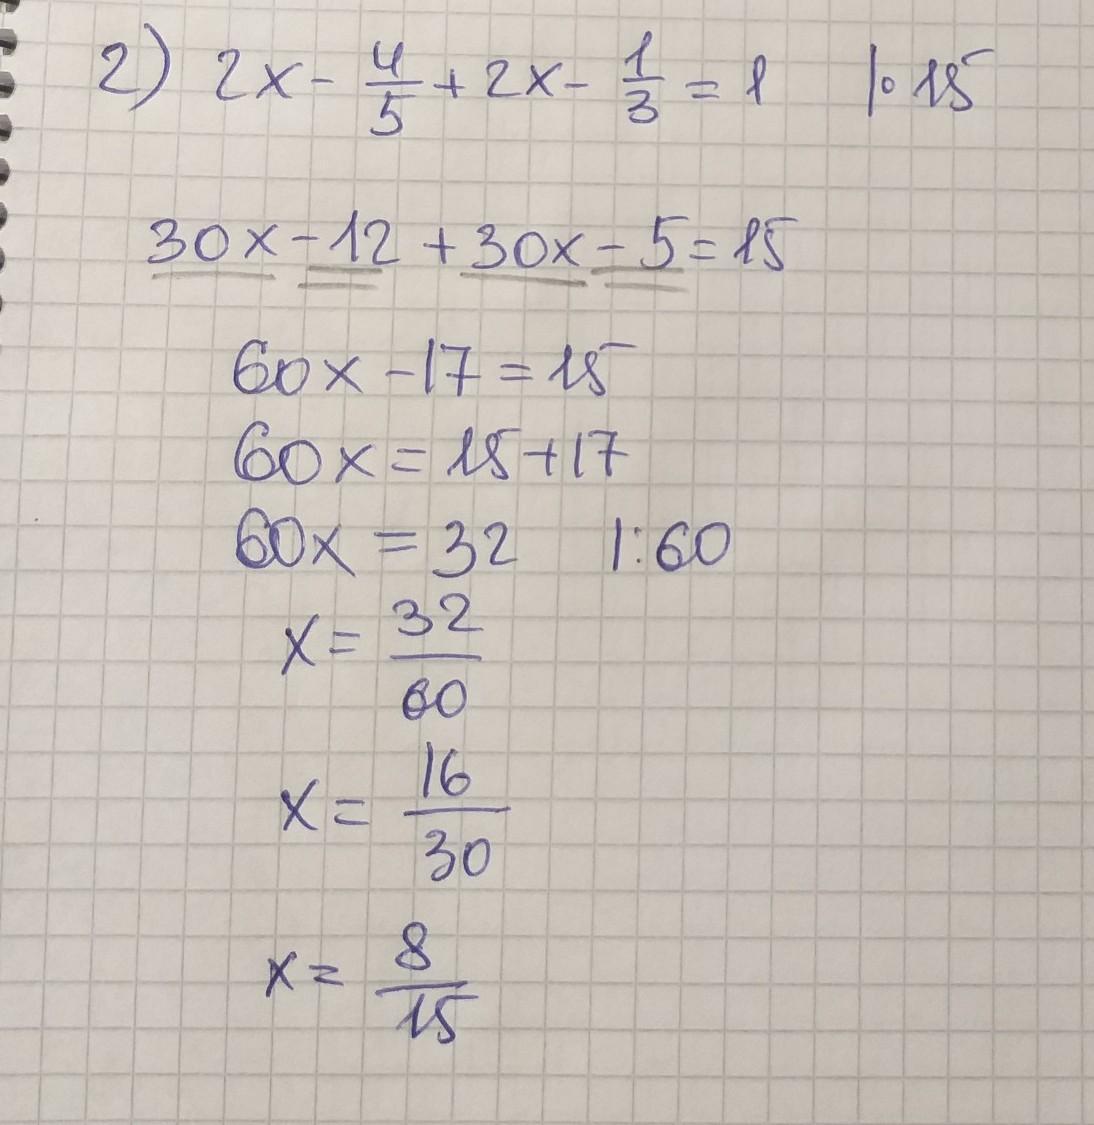 2) 2x - 4/5 + 2x - 1/3 = 1 |· 15
30x - 12 + 30x - 5 = 15
60x - 17 = 15
60x = 15 + 17
60x = 32 |: 60
x = 32/60
x = 16/30
x = 8/15